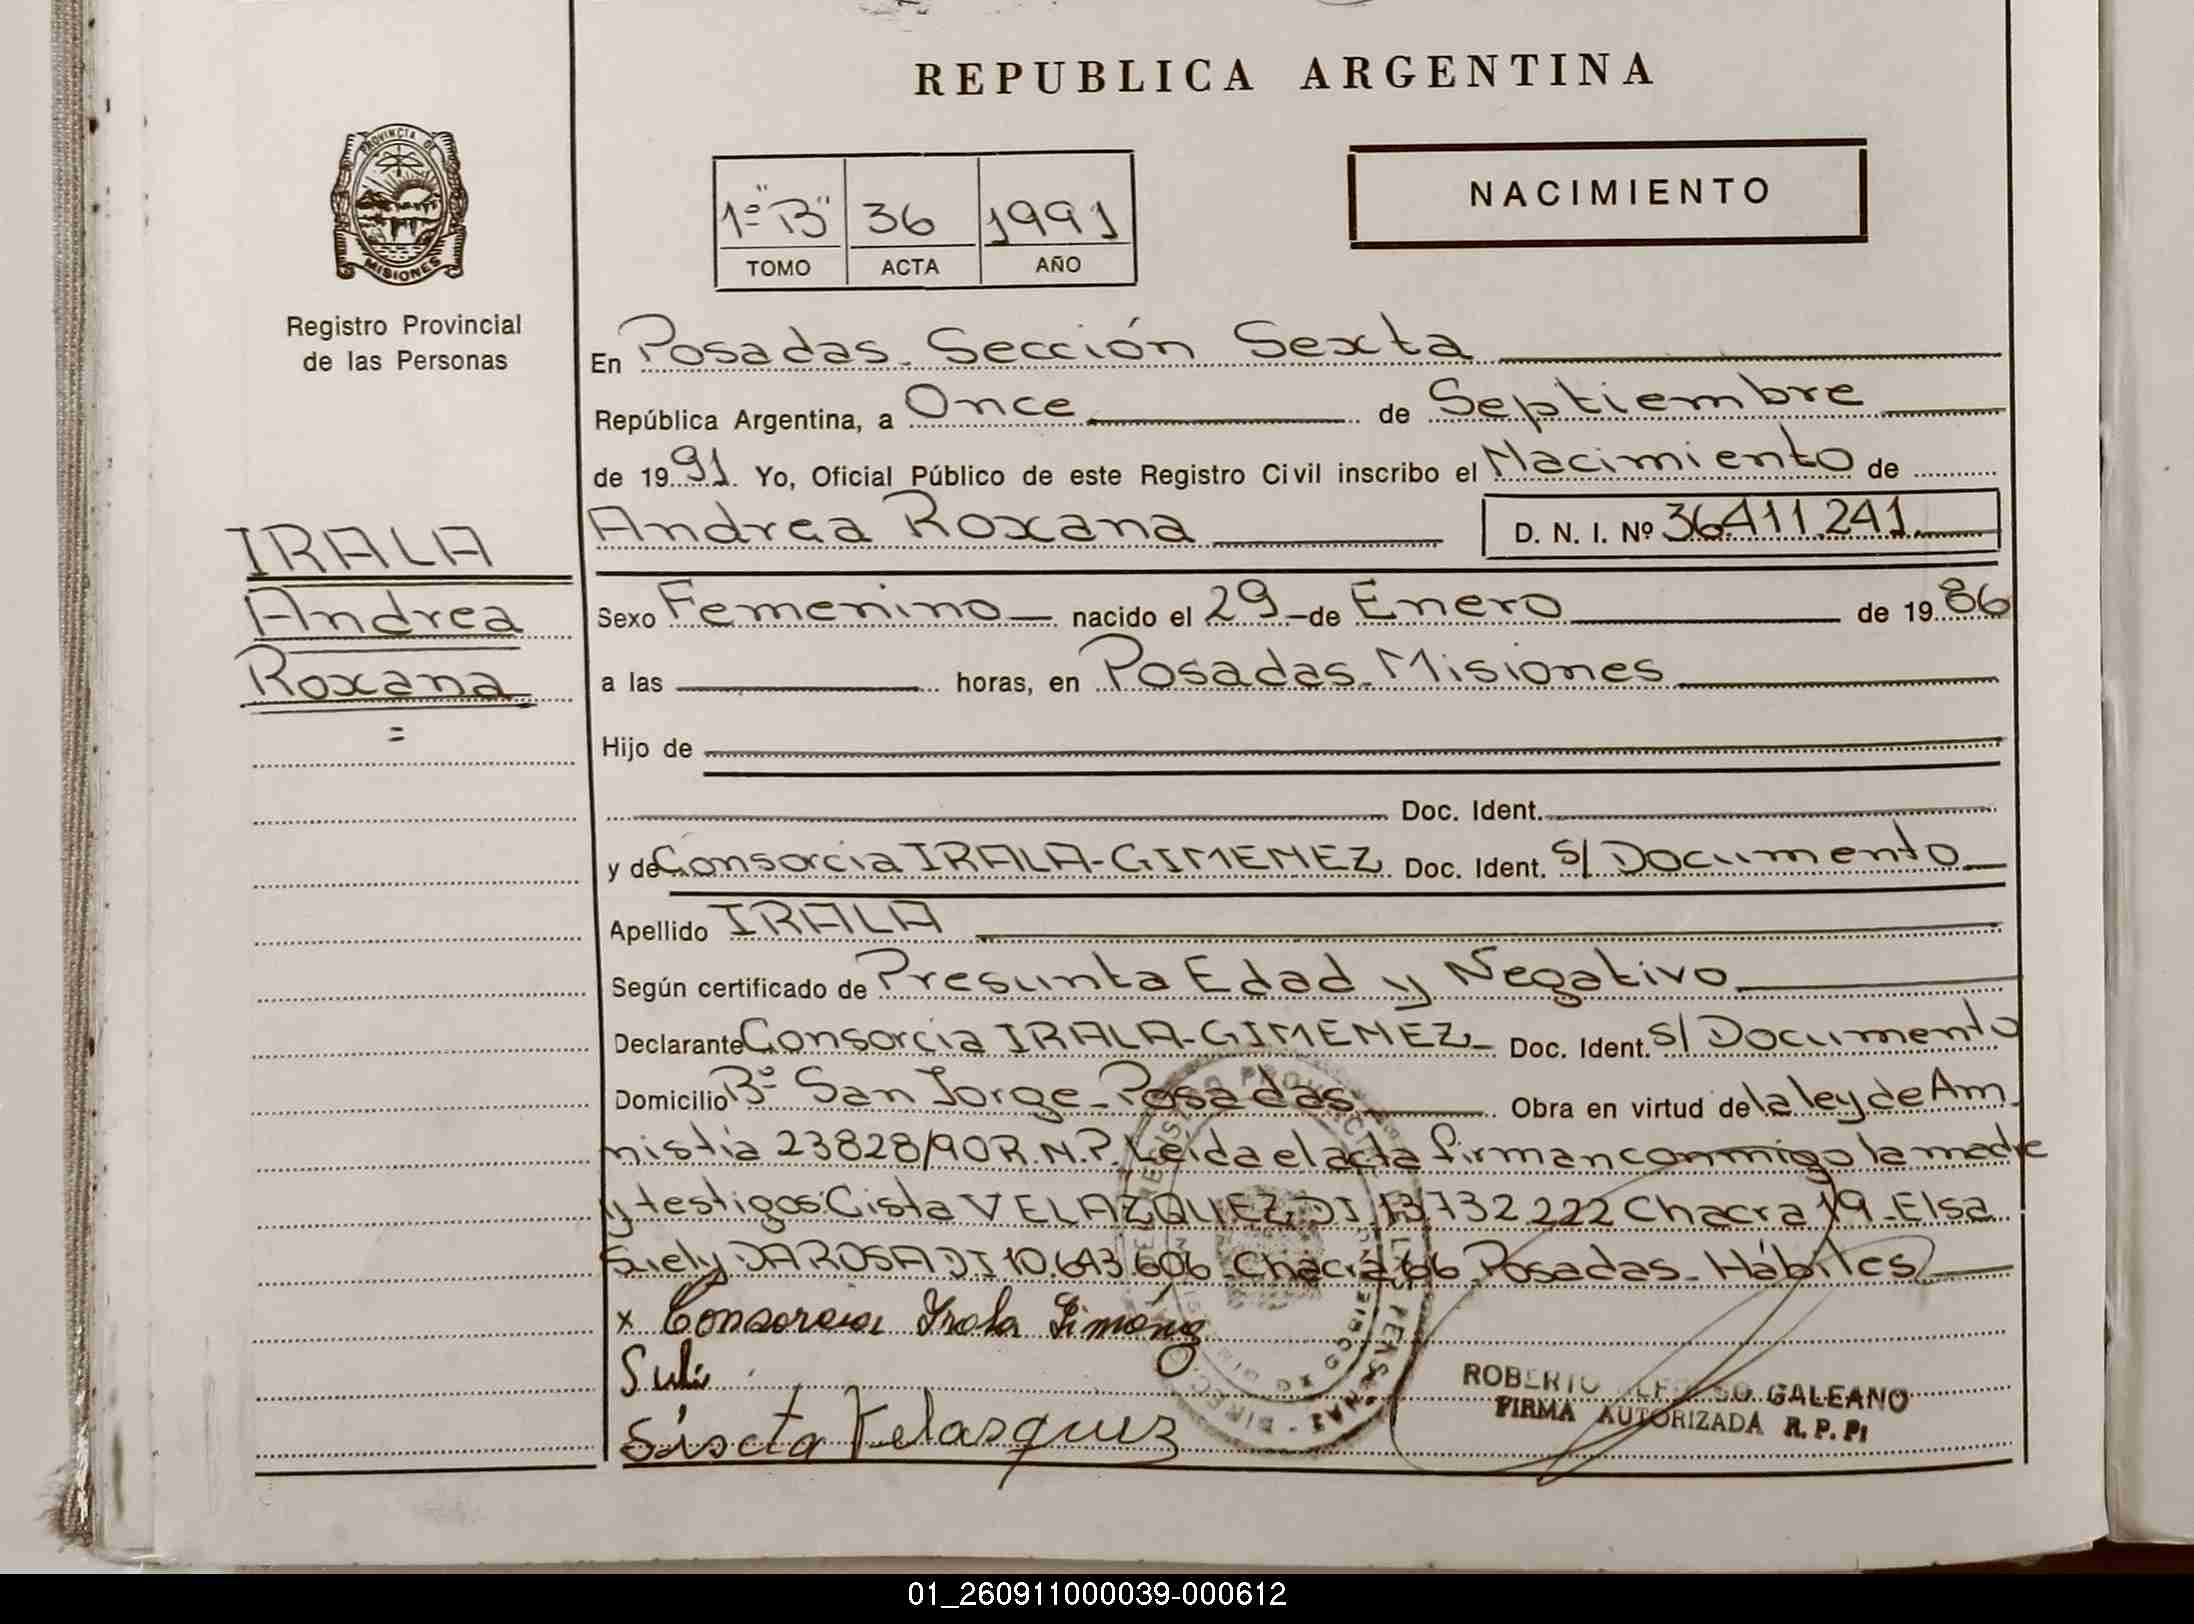 REPUBLICA ARGENTINA
PROVINCIA DE
MISIONES
Registro Provincial
de las Personas
1º "B" 36 1991
TOMO ACTA AÑO
NACIMIENTO
En Posadas - Sección Sexta
República Argentina, a Once de Septiembre
de 1991. Yo, Oficial Público de este Registro Civil inscribo el Nacimiento de
Andrea Roxana D. N. I. Nº 36.411.241
IRALA
Andrea
Roxana
=
Sexo Femenino nacido el 29 - de Enero de 1986
a las horas, en Posadas - Misiones
Hijo de
Doc. Ident.
y de Consorcia IRALA-GIMENEZ Doc. Ident. S/ Documento
Apellido IRALA
Según certificado de Presunta Edad y Negativo
Declarante Consorcia IRALA-GIMENEZ - Doc. Ident. S/ Documento
Domicilio Bº San Jorge - Posadas Obra en virtud de la ley de Am
nistia 23828/90 R.N.P. Leida el acta firman conmigo la madre
y testigos: Cista VELAZQUEZ DI 13.732.222 Chacra 19 - Elsa
Siely DAROSA DI 10.643.606 - Chacra 66 Posadas - Hábiles
x Consorcia Irala Jiménez
Siscta Velasquez
ROBERTO GALEANO
FIRMA AUTORIZADA R. P. P.
01_260911000039-000612